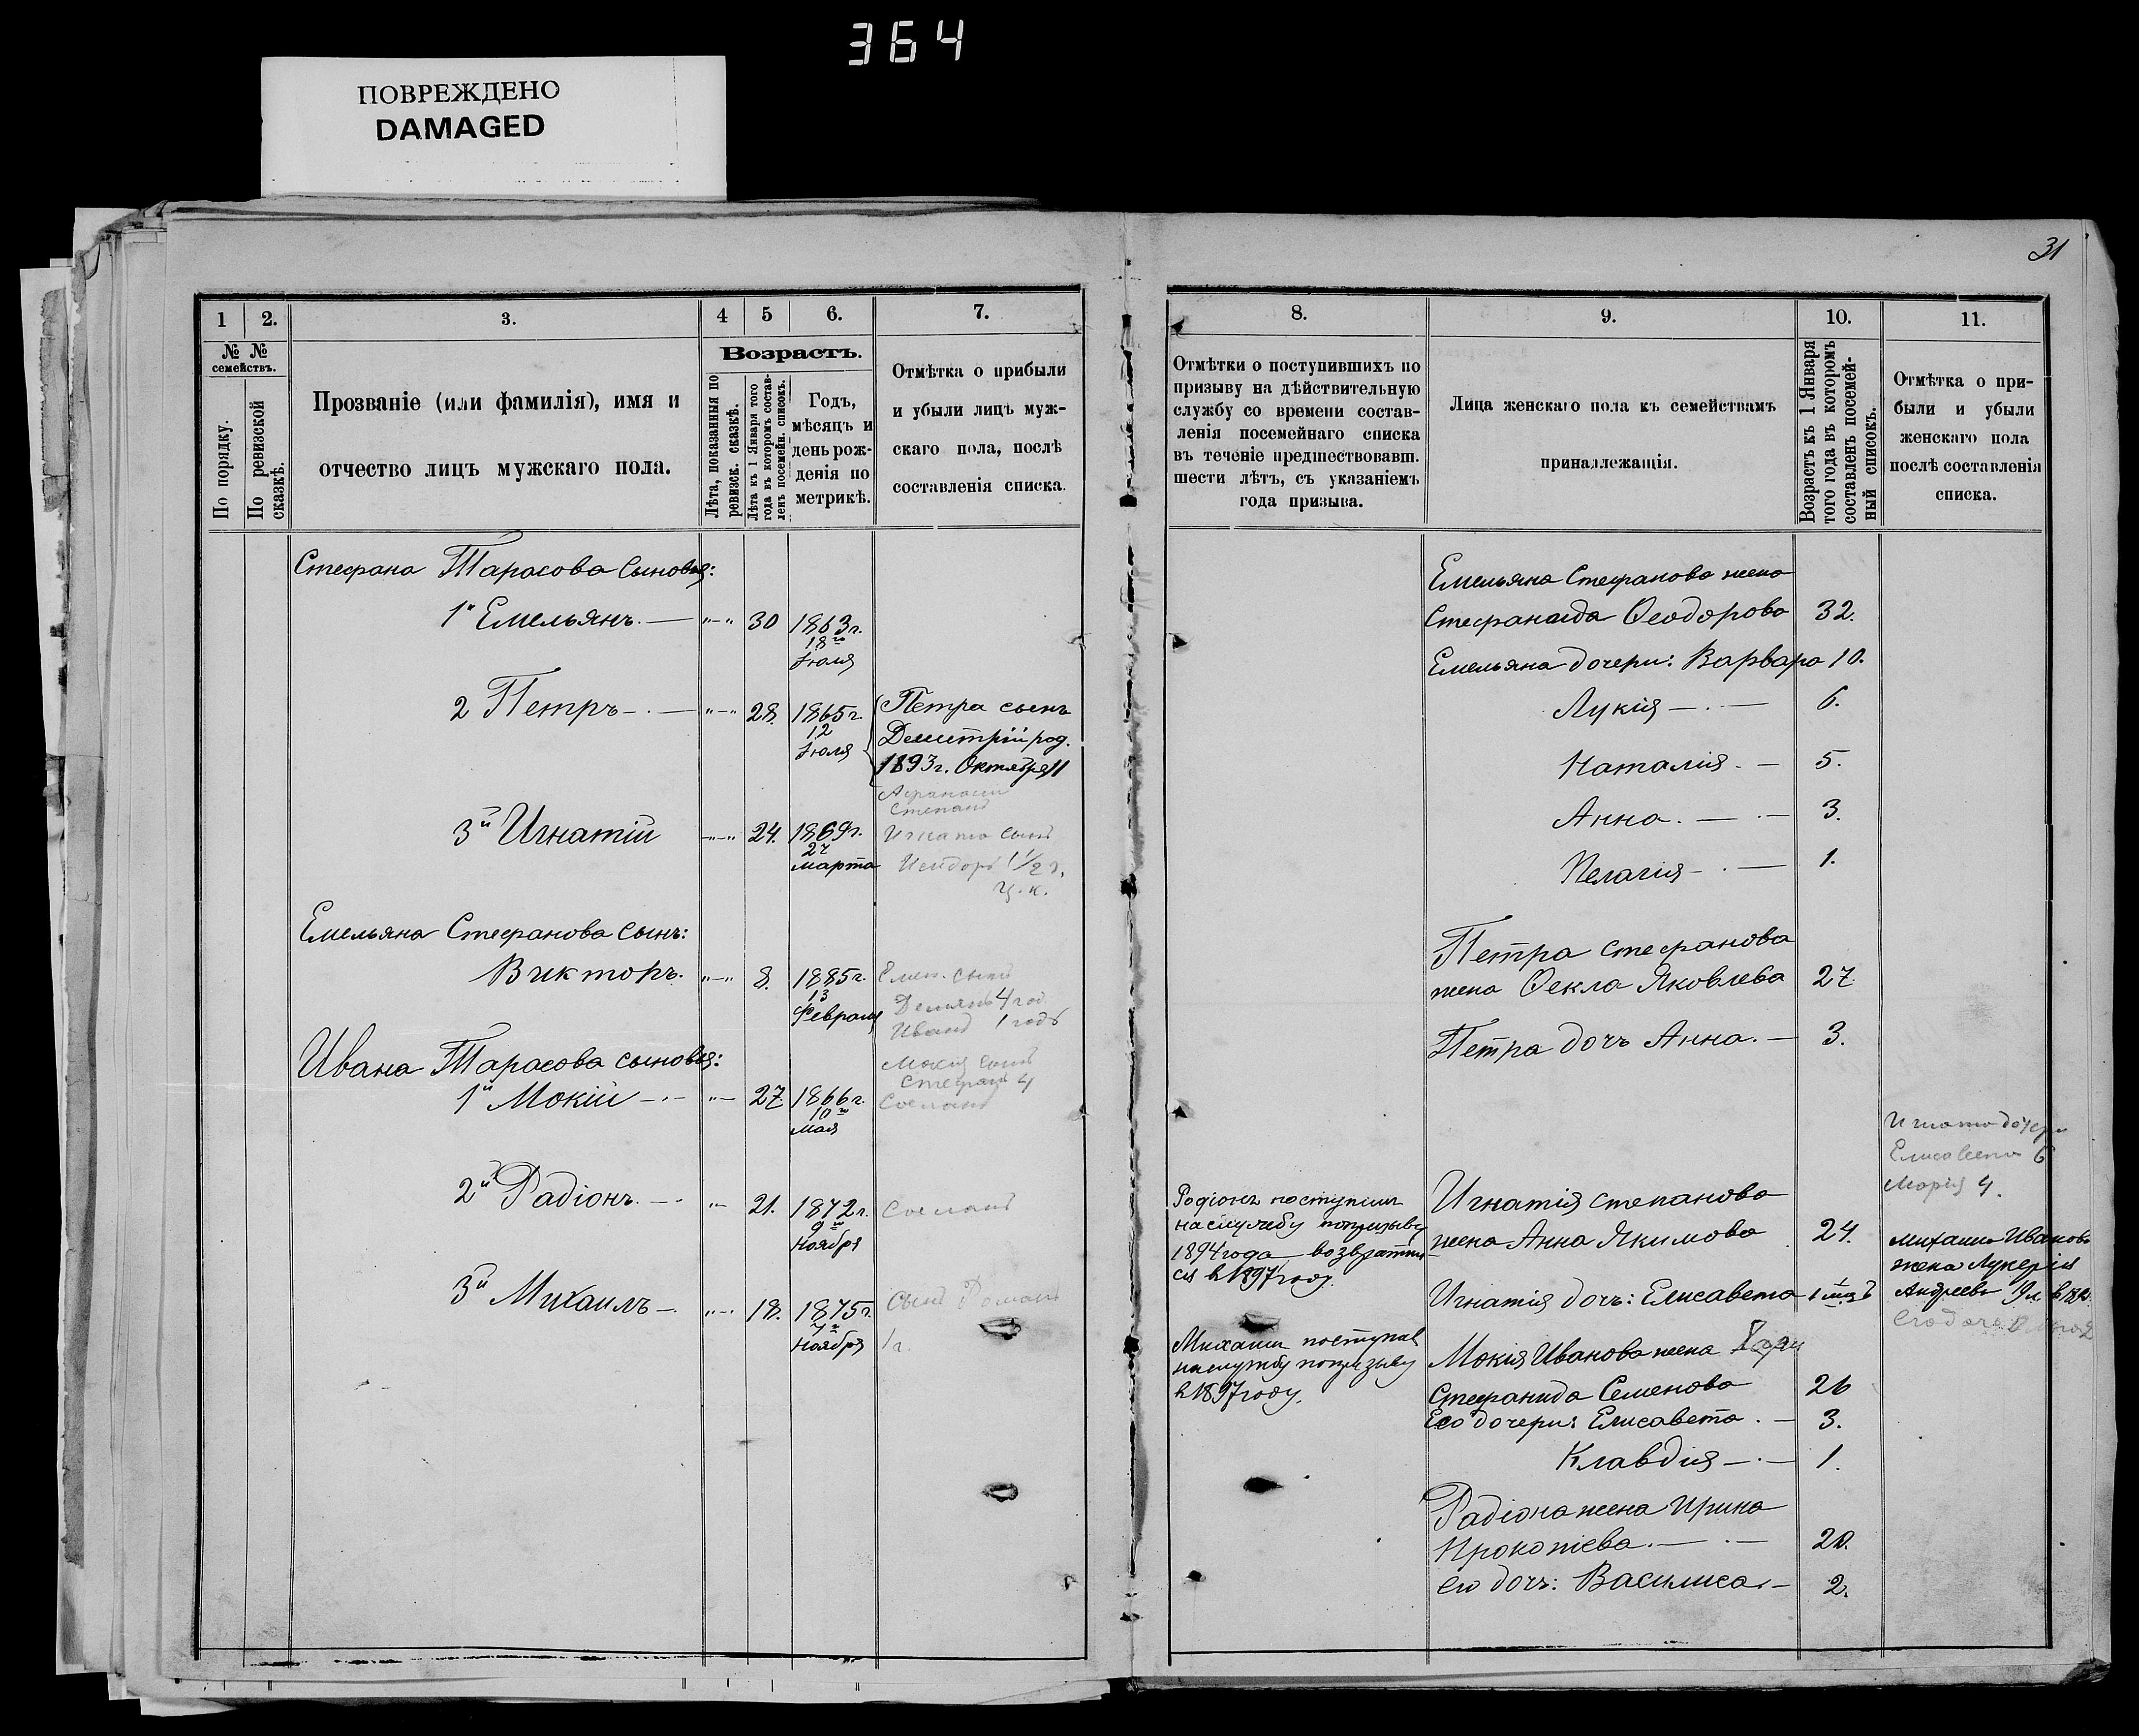 364
ПОВРЕЖДЕНО
DAMAGED
31
1
2.
3.
4
5
6.
7.
№ №
семействъ.
По порядку.
По ревизской
сказкѣ.
Прозваніе (или фамилія), имя и
отчество лицъ мужскаго пола.
Возрастъ.
Лѣта, показанныя по
ревизск. сказкѣ.
Лѣта къ 1 Января того
года въ которомъ состав-
ленъ посемейн. списокъ.
Годъ,
мѣсяцъ и
день рож-
денія по
метрикѣ.
Отмѣтка о прибыли
и убыли лицъ муж-
скаго пола, послѣ
составленія списка.
Стефана Тарасова сыновья:
1й Емельянъ. — 30 1863г.
18го
Іюля
2 Петръ — 28. 1865г.
12
Іюля
Петра сынъ
Демитрій род.
1893г. Октября 11
Афанасій
Степанъ
3й Игнатій 24. 1869г.
Марта
Игната сынъ
1 1/2 г.
Емельяна Стефанова сынъ:
Викторъ. 8. 1885г.
13
Февраля
Емел. сынъ
4 год
Иванъ 1 годъ
Ивана Тарасова сыновья:
1й Мокій — 27. 1866г.
10го
Мая
Мокія сынъ
Стефанъ 4
Сосланъ
2й Радіонъ. — 21. 1872г.
9го
Ноября
Сосланъ
3й Михаилъ — 18. 1875г.
7го
Ноября
сынъ Романъ
1г.
8.
9.
10.
11.
Отмѣтки о поступившихъ по
призыву на дѣйствительную
службу со времени состав-
ленія посемейнаго списка
въ теченіе предшествовавш.
шести лѣтъ, съ указаніемъ
года призыва.
Лица женскаго пола къ семействамъ
принадлежащія.
Возрастъ къ 1 Января
того года въ которомъ
составленъ посемей-
ный списокъ.
Отмѣтка о при-
были и убыли
женскаго пола
послѣ составленія
списка.
Емельяна Стефанова жена
Стефанида Ѳеодорова 32.
Емельяна дочери: Варвара 10.
Лукія — 6.
Наталия. — 5.
Анна. — 3.
Пелагія — 1.
Петра Стефанова
жена Ѳекла Яковлева 27
Петра дочь Анна. — 3.
Игната дочери
Елисавета 6
Марія 4.
Родіонъ поступилъ
на службу по призыву
1894 года возврати
ся в 1897 году.
Игнатія Степанова
жена Анна Якимова 24.
Игнатія дочь: Елисавета 1 мцъ
Михаила Иванова
жена Лукерія
Андреева
Михаилъ поступилъ
на службу по призыву
в 1897 году.
Мокія Иванова жена
Стефанида Семенова 26
Его дочери: Елисавета. — 3.
Клавдия — 1.
Радіона жена Ирина
Прокопіева. — 20.
Его дочь: Василиса — 2.